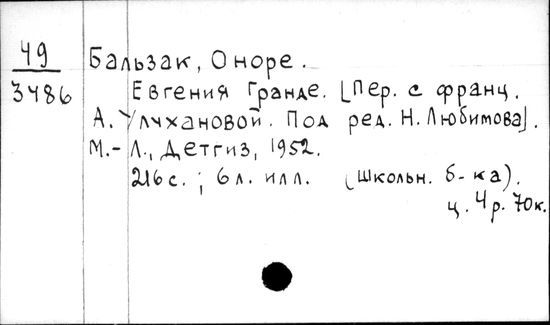 49 Бальзак, Оноре.
3486 Евгения Гранде. [Пер. с франц.
А. Улчхановой. Под ред. Н. Любимова].
М.-Л., Детгиз, 1952.
216 с. ; 6 л. илл. (Школьн. б-ка).
ц. 4 р. 70 к.